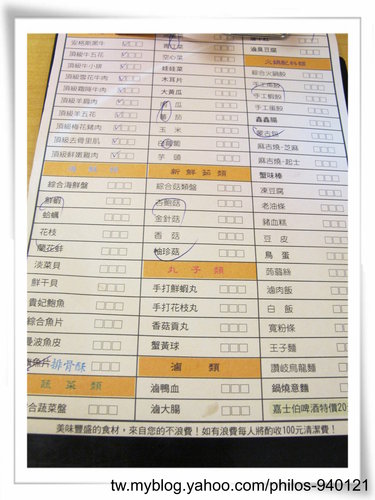 安格斯黑牛
頂級牛五花
頂級牛小排
頂級雪花牛肉
頂級霜降牛肉
頂級羊肩肉
頂級羊五花
頂級梅花豬肉
頂級去骨里肌
頂級鮮嫩雞肉
綜合海鮮盤
鮮蝦
蛤蠣
花枝
蘭花蚌
淡菜貝
鮮干貝
貴妃鮑魚
綜合魚片
曼波魚皮
魚片 排骨酥
蔬菜類
合蔬菜盤
青江菜
空心菜
娃娃菜
木耳片
大黃瓜
南瓜
蕃茄
玉米
芋頭
新鮮菇類
綜合菇類盤
杏鮑菇
金針菇
香菇
柚珍菇
丸子類
手打鮮蝦丸
手打花枝丸
香菇貢丸
蟹黃球
滷類
滷鴨血
滷大腸
滷臭豆腐
火鍋配料類
綜合火鍋餃
手工燕餃
手工蝦餃
手工蛋餃
鑫鑫腸
麻吉燒-芝麻
麻吉燒-起士
蟹味棒
凍豆腐
老油條
豬血糕
豆皮
鳥蛋
蒟蒻絲
滷肉飯
白飯
寬粉條
王子麵
讚岐烏龍麵
鍋燒意麵
嘉士伯啤酒特價20
美味豐盛的食材，來自您的不浪費！如有浪費每人將酌收100元清潔費！
tw.myblog.yahoo.com/philos-940121